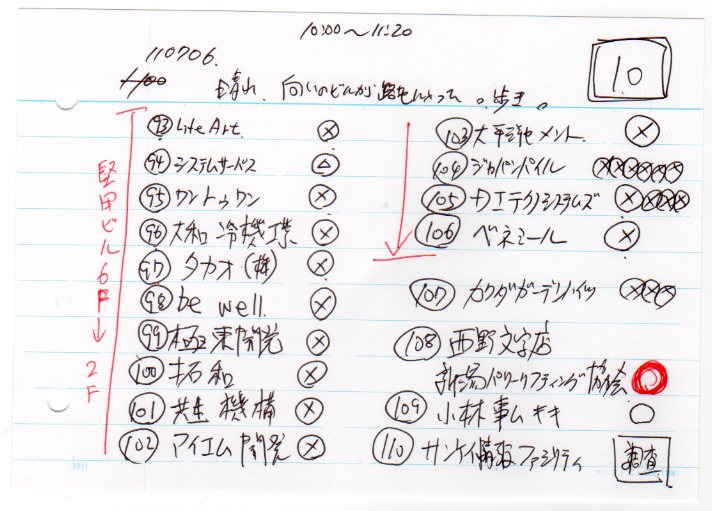 10:00〜11:20
110706.
10
晴れ. 向いのビルが
93 Life Art. ×
94 システムサーバス △
95 ワントゥワン ×
96 大和冷機工業 ×
97 タカオ(株) ×
98 be well. ×
99 極東開発 ×
100 拓和 ×
101 共生機構 ×
102 アイエム開発 ×
堅田ビル6F→2F
103 太平洋セメント. ×
104 ジャパンパイル ××××××
105 テクノシステムズ ××××
106 ベネミール ×
107 カクダガーデンハイツ ×××
108 西野文字店
新潟パワーリフティング協会 ◎
109 小林事ムキキ ○
110 サンケイ情報ファシリティ 調査